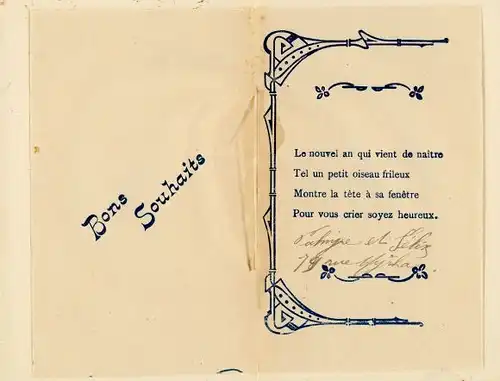 Bons
Souhaits
Le nouvel an qui vient de naître
Tel un petit oiseau frileux
Montre la tête à sa fenêtre
Pour vous crier soyez heureux.
et Félix
rue Myrha